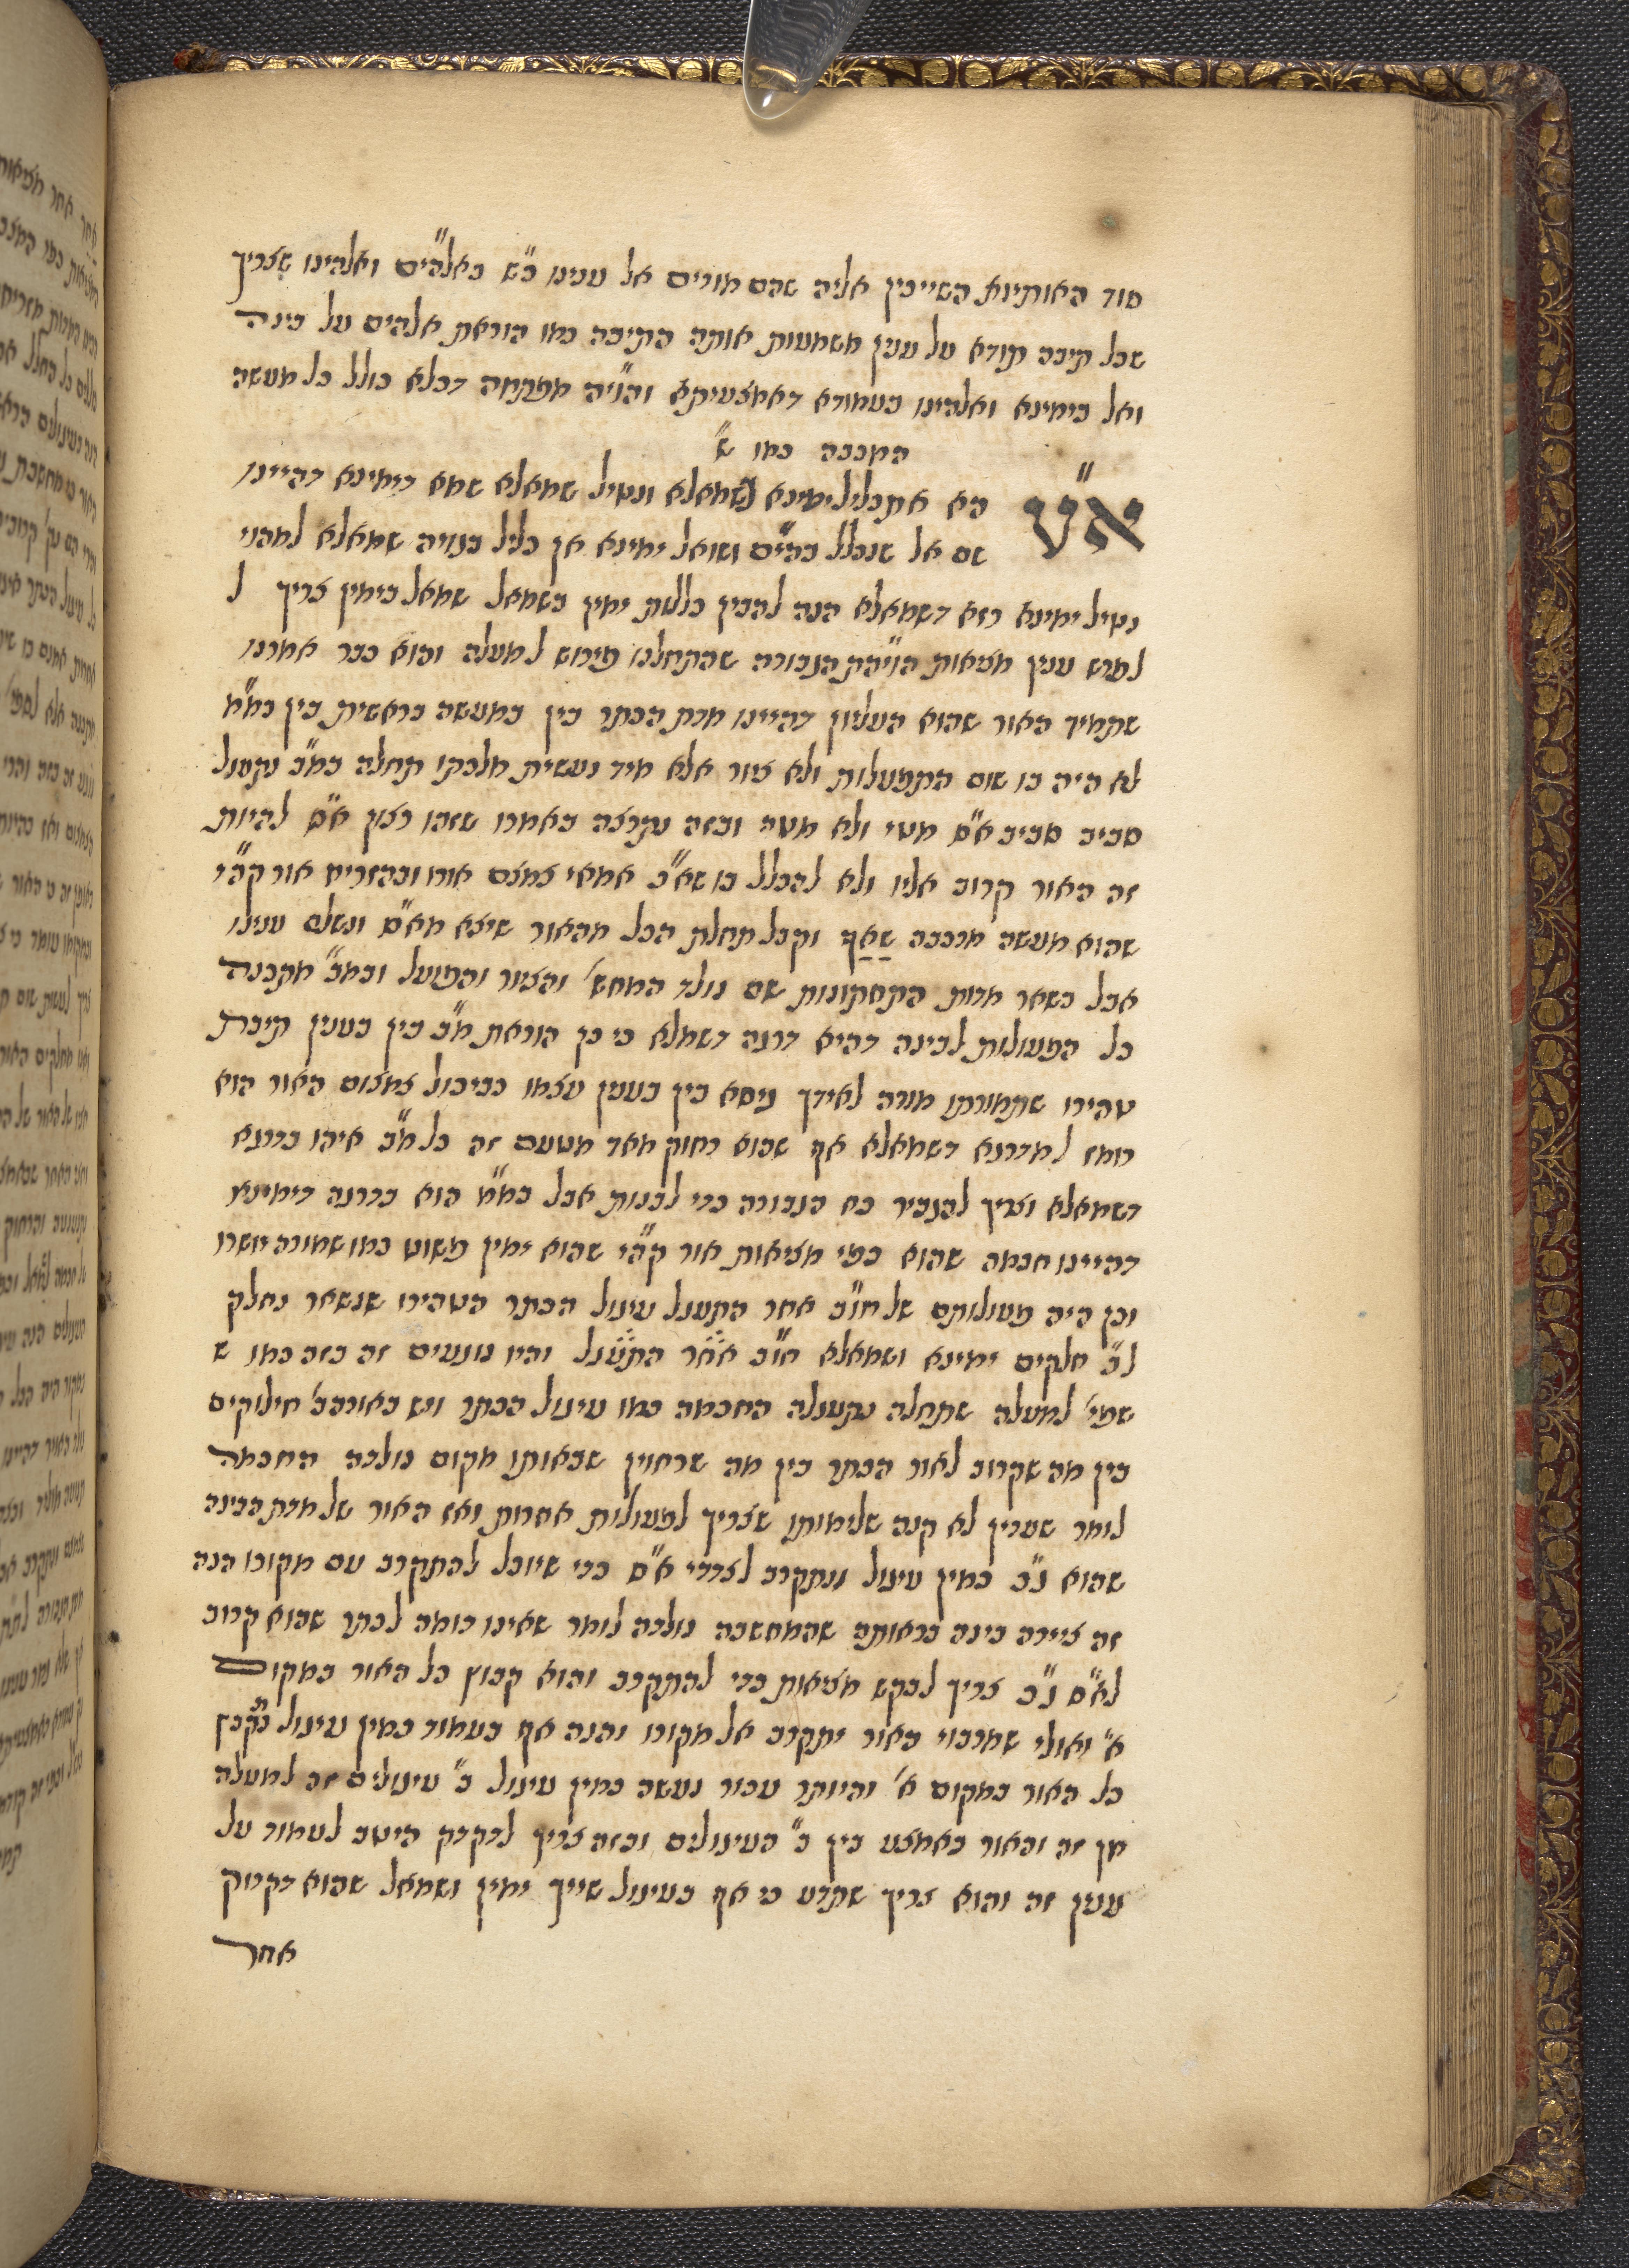 סוד האותיות השייכין אליה שהם מורים אל ענינו כ"ש באלהי"ם ואלהינו שצריך
שכל תיבה תורא על ענין משמעות אותה התיבה כמו הוראת אלהים על בינה
ואל בימינא ואלהינו בעמודא דאמצעיתא והוי"ה מפתחה דכלא כולל כל מעשה
המרכבה כמו ש"
א"ש הא אתכליל ימינא בשמאלא ונטיל שמאלא שמא דימינא דהיינו
שם אל שנכלל בהי"ם ושואל ימינא אן כליל בגויה שמאלא למהוי
נטיל ימינא רזא דשמאלא הנה להבין כללות ימין בשמאל שמאל בימין צריך ל
לפרש ענין מציאות הוי"ת הגבורה שהתחלנו פירוש למעלה והוא כבר אמרנו
שתמיד האור שהוא העליון דהיינו מדת הכתר בין במעשה בראשית בין במ"מ
לא היה בו שום התפעלות ולא ציור אלא מיד נעשית מלכתו תחלה במ"ב נתעגל
סביב סביב א"ס מטי ולא מטה ובזה נתרצה באמרו שזהו רצון א"ס להיות
זה האור קרוב אליו ולא להכלל בו שא"כ אמאי צמצם אורו ובהזריח אור קה"י
שהוא מעשה מרכבה שאף וקבל תחלת הכל מהאור שיצא מא"ס ונשלם ענינו
אבל בשאר מדות התחתונות שם נולד המחש' והציור והפועל ובמ"ב מתכנה
כל הפעולות לבינה דהיא דרגה דשמלא כי כך הוראת מ"ב בין בענין תיבת
טהירו שתמורתו מורה לאידך גיסא בין בענין עצמו כביכול צמצום האור הוא
רומז למדרגא דשמאלא אף שהוא רחוק מאד מטעם זה כל מ"ב איהו בדרגא
דשמאלא וצריך להגביר כח הגבורה כדי לבנות אבל במ"מ הוא בדרגה דימינא
דהיינו חכמה שהוא כפי מציאות אור קה"י שהוא ימין פשוט כמו שמורה יושרו
וכן היה פעולותם של חו"ב אחר התעגל עיגול הכתר הטהירו שנשאר נחלק
לב' חלקים ימינא ושמאלא חו"ב אחר התעגל והיו נוגעים זה בזה כמו ש
שפי' למעלה שתחלה נתעגלה החכמה כמו עיגול הכתר ויש באורה ב' חילוקים
בין מה שקרוב לאור הכתר בין מה שרחוק שבאותו מקום נולדה החכמה
לומר שעדין לא קנה שלימותו שצריך לפעולות אחרות ואז האור של מדת הבינה
שהוא ג"כ כמין עיגול ונתקרב לצדדי א"ס כדי שיוכל להתקרב עם מקורו הנה
זה ציירה בינה בראותה שהמחשבה נולדה לומר שאינו דומה לכתר שהוא קרוב
לא"ס ג"כ צריך לבקש מציאות כדי להתקרב והוא קבוץ כל האור במקום
א' ואולי שמרבוי האור יתקרב אל מקורו והנה אף בעמוד כמין עיגול נתקבץ
כל האור במקום א' והיותר עכור נעשה כמין עיגול ב' עיגולים זה למעלה
מן זה והאור באמצע בין ב' העיגולים ובזה צריך לדקדק היטב לעמוד על
ענין זה והוא צריך שתדע כי אף בעיגול שייך ימין ושמאל שהוא דקדוק
אחר